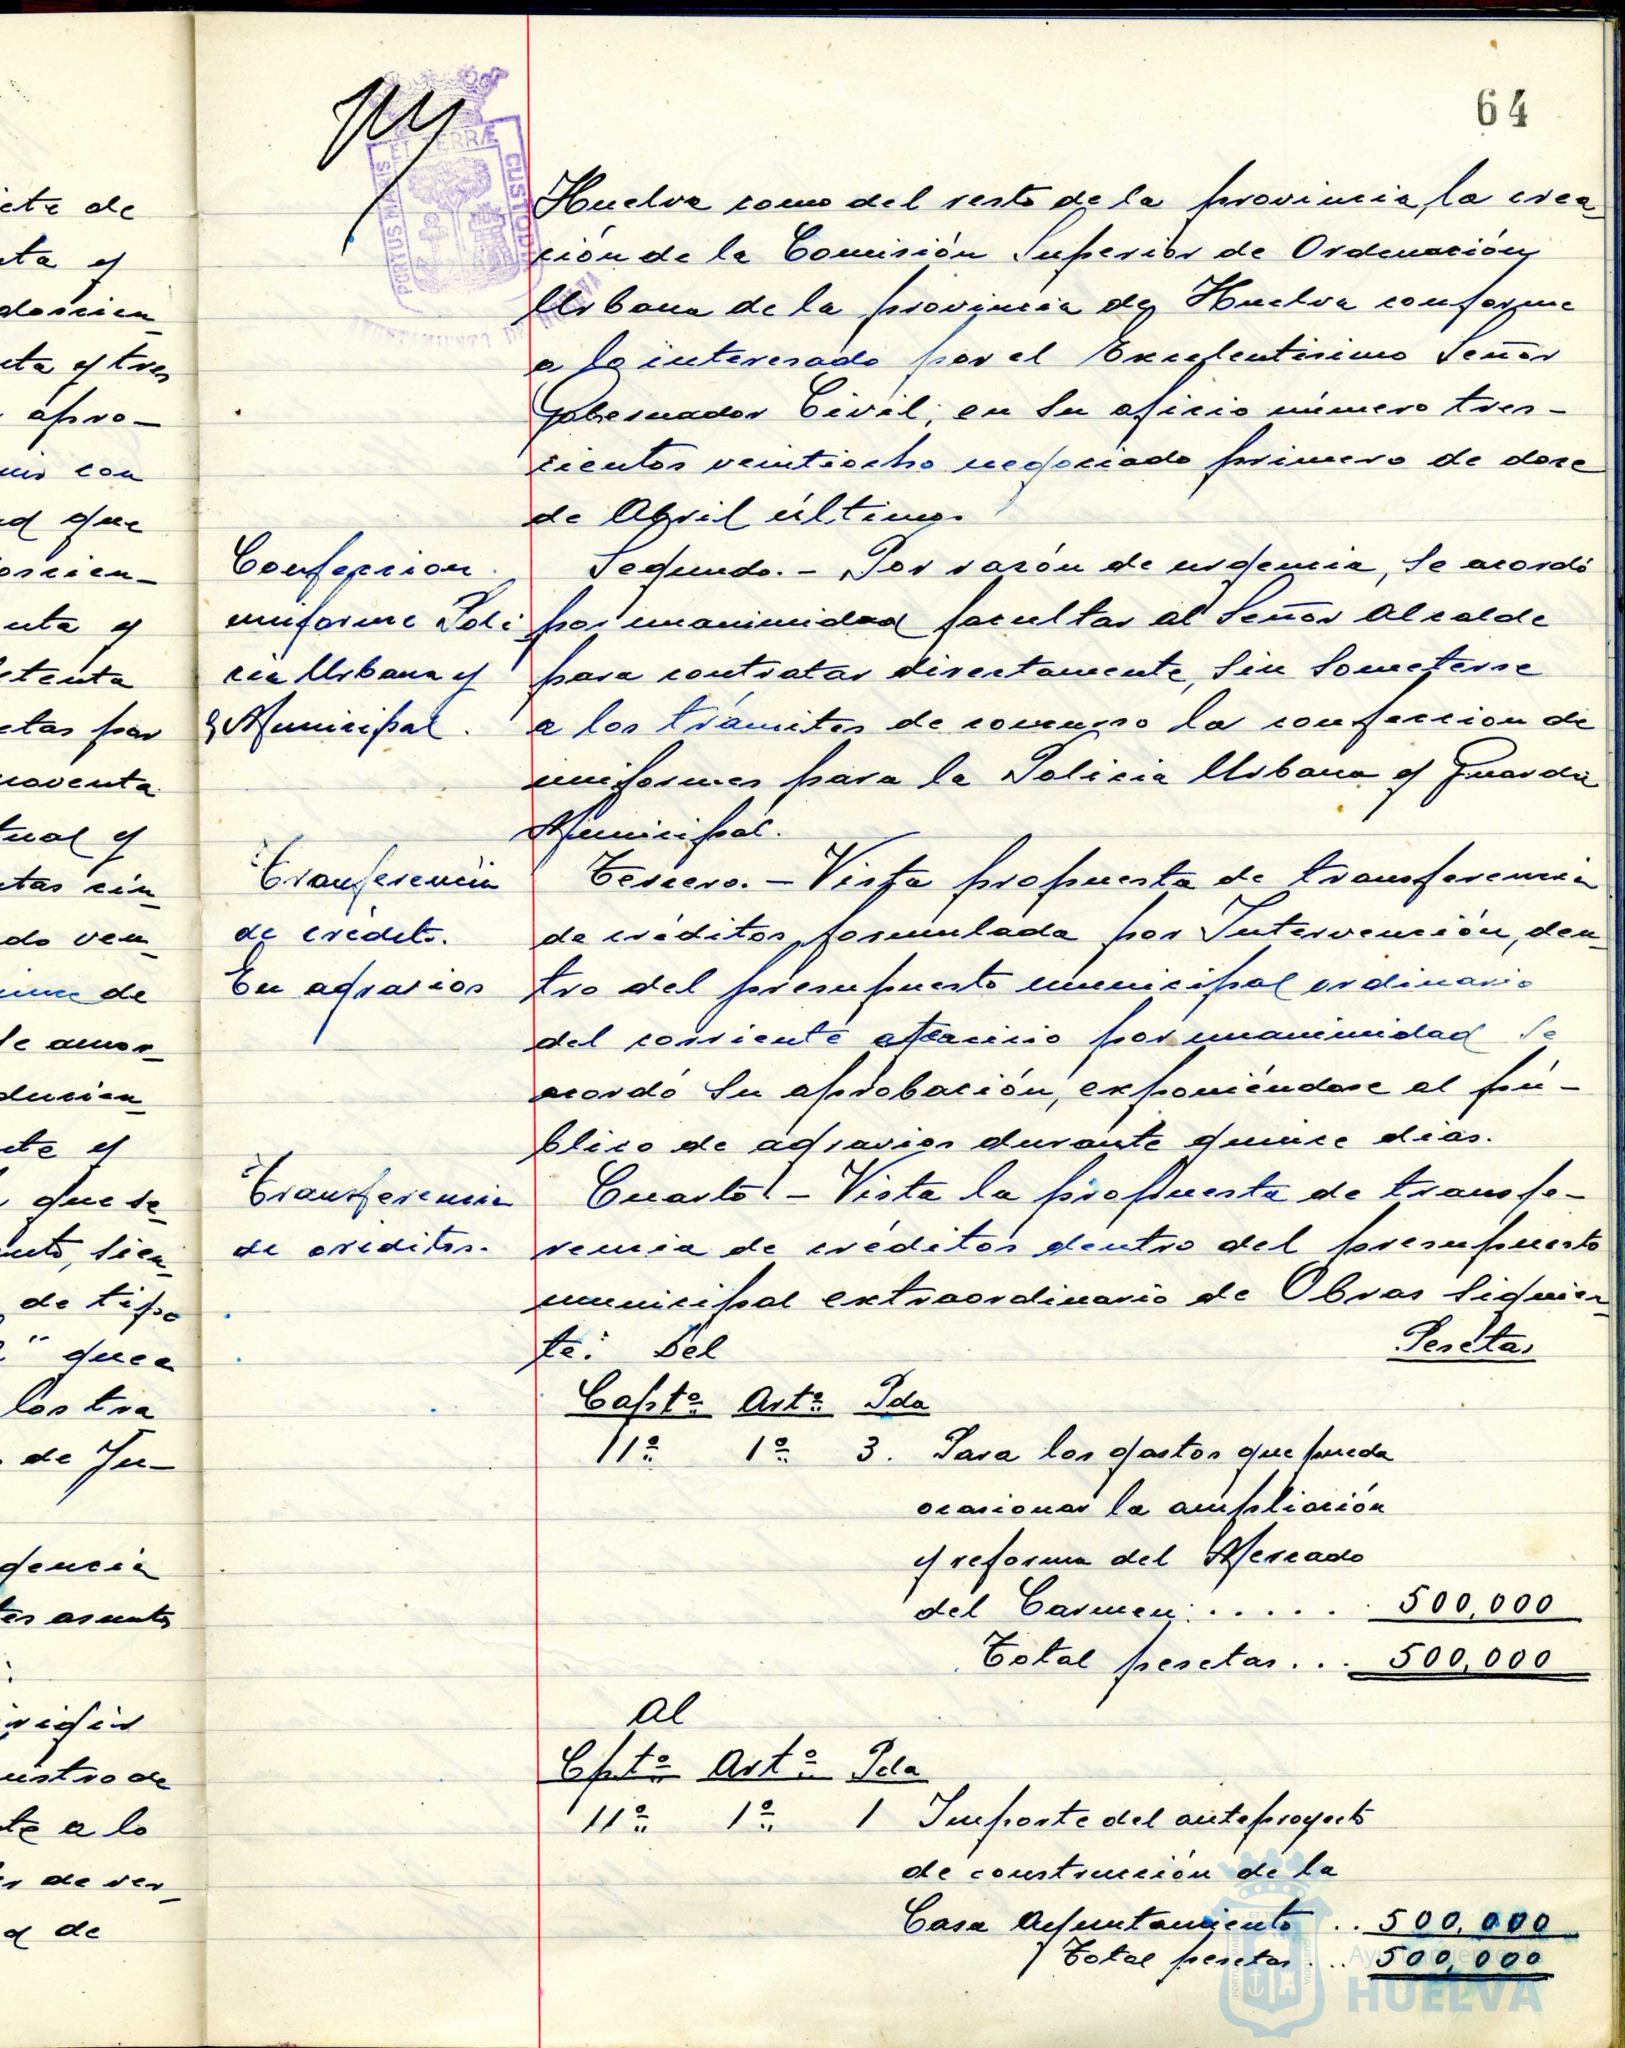 64
Huelva como del resto de la provincia, la crea
ción de la Comisión Superior de Ordenación
Urbana de la provincia de Huelva conforme
a lo interesado por el Excelentisimo Señor
Gobernador Civil, en su oficio número tres-
cientos veintiocho negociado primero de doce
de Abril último.
Confeccion
uniforme Poli
cia Urbana y
Municipal.
Segundo. - Por razón de urgencia, se acordó
por unanimidad facultar al Señor Alcalde
para contratar directamente, sin someterse
a los trámites de concurso la confeccion de
uniformes para la Policia Urbana y Guardia
Municipal.
Tranferencia
de crédito.
En agravios
Tercero. - Vista propuesta de transferencia
de créditos formulada por Intervención, den
tro del presupuesto municipal ordinario
del corriente por unanimidad se
acordó su aprobación, exponiéndose al pú-
blico de agravios durante quince dias.
Transferencia
de creditos.
Cuarto. - Vista la propuesta de transfe-
rencia de créditos dentro del presupuesto
municipal extraordinario de Obras siguien
te: Del Pesetas
Capto Arto Pda
11º 1º 3. Para los gastos que pueda
ocasionar la ampliación
y reforma del Mercado
del Carmen: ..... 500,000
Total pesetas... 500,000
Al
Cpto Arto Pda
11º 1º 1 Importe del anteproyecto
de construcción de la
Casa Ayuntamiento .. 500,000
Total pesetas... 500,000
Ayuntamiento
HUELVA
ete de
nta y
doscien
nta y tres
apro-
con
d que
oscien-
nta y
etenta
etas por
noventa
tual y
tas cin
do ven
de
de amor
ducien
te y
que se
nto, sien
de tipo
" que a
los tra
de Ju-
gencia
tes asuntos
:
rigir
ustro de
te a lo
de ver
d de
PORTUS MARIS ET TERRÆ CUSTODIA
AYUNTAMIENTO DE HUELVA